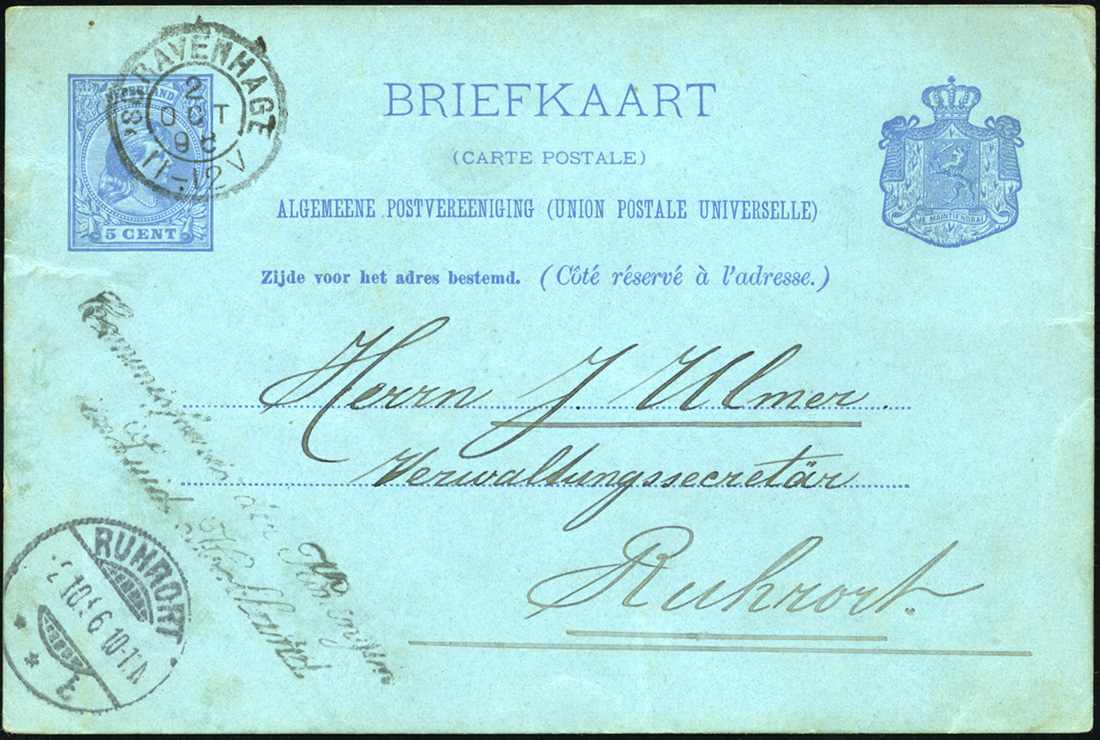 'S GRAVENHAGE
2
OCT
96
11-12V
NEDERLAND
5 CENT
BRIEFKAART
(CARTE POSTALE)
ALGEMEENE POSTVEREENIGING (UNION POSTALE UNIVERSELLE)
JE MAINTIENDRAI
Zijde voor het adres bestemd. (Côté réservé à l'adresse.)
Herrn J. Ulmer.
Verwaltungssecretär
Ruhrort.
der
Zuid
RUHRORT
2.10.96.10-11N